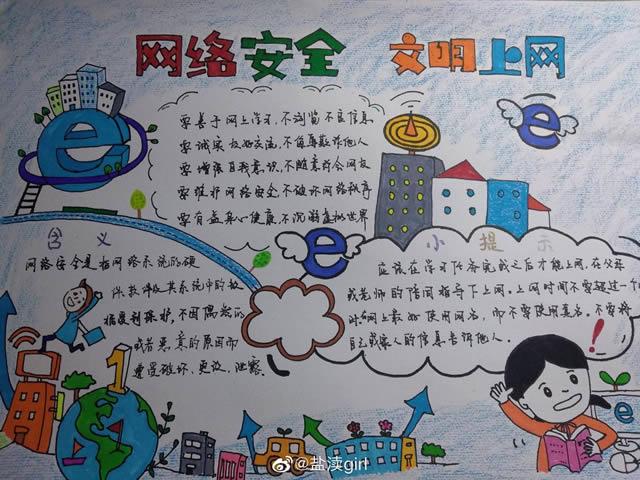 网络安全 文明上网
要善于网上学习，不浏览不良信息
要诚实友好交流，不侮辱欺诈他人
要增强自我意识，不随意约会网友
要维护网络安全，不破坏网络秩序
要有益身心健康，不沉溺虚拟世界
含义
网络安全是指网络系统的硬
件、软件及其系统中的数
据受到保护，不因偶然的
或者恶意的原因而
遭受破坏、更改、泄露。
小提示
应该在学习任务完成之后才能上网，在父母
或老师的陪同指导下上网。上网时间不要超过一个
时。网上最好使用网名，而不要使用真名。不要将
自己或家人的信息告诉他人。
e
e
e
e
1
!
@盐渎girl